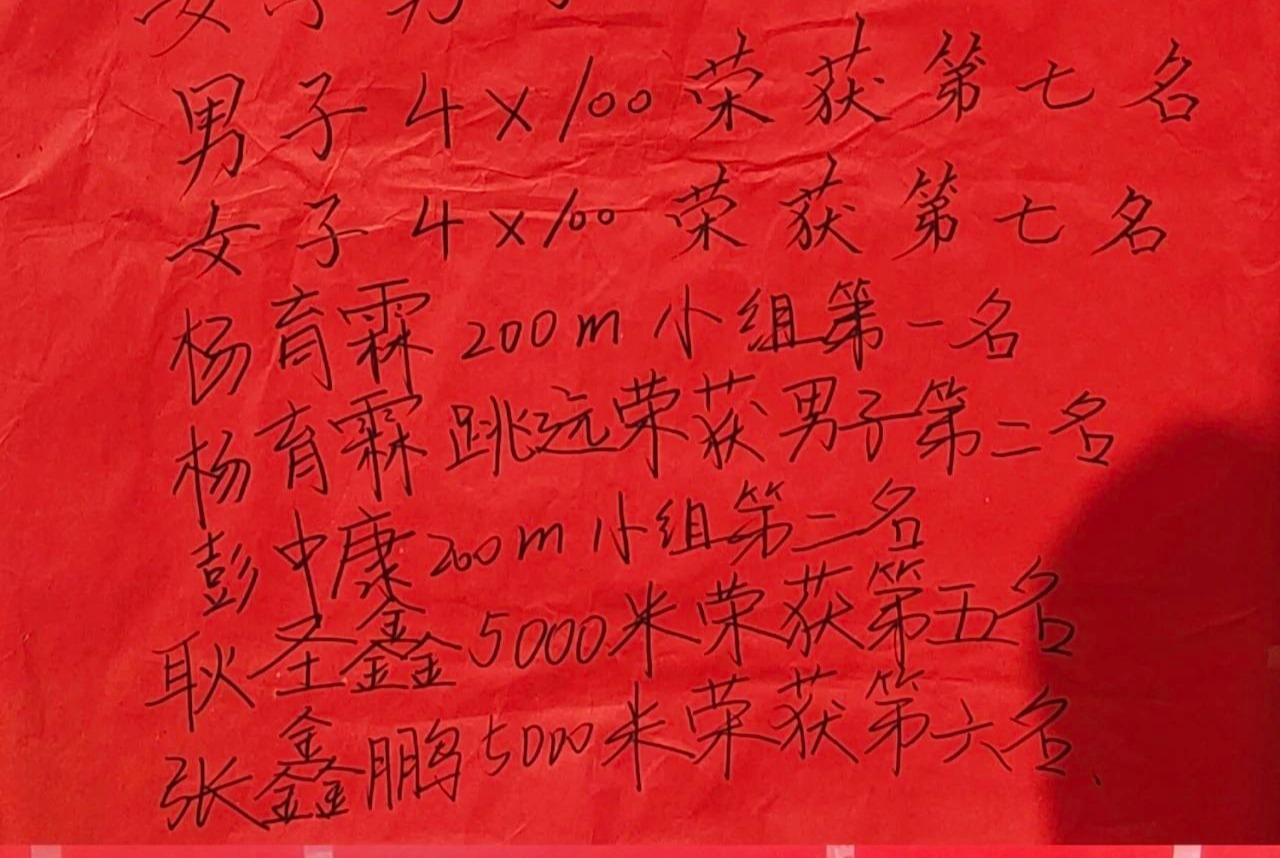 男子4×100荣获第七名
女子4×100荣获第七名
杨育霖200m小组第一名
杨育霖跳远荣获男子第二名
彭中康200m小组第二名
耿圣鑫5000米荣获第五名
张鑫鹏5000米荣获第六名、